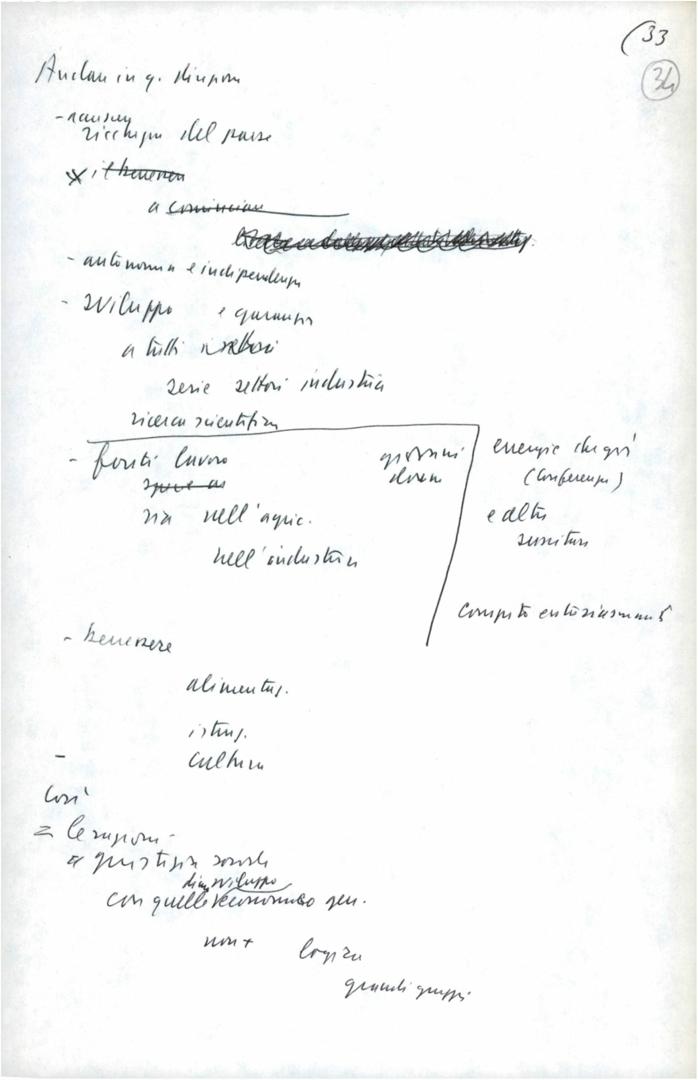 (33
34
Andare in q. direzione
- 
ricchezza del paese
a cominciare
- autonomia e indipendenza
- sviluppo e garanzia
a tutti i settori
serie settori industria
ricerca scientifica
- fonti lavoro
giovani
donne
sia nell'agric.
nell'industria
energie
(Conferenza)
e altre
Compito entusiasmante
- benessere
alimentaz.
istruz.
- cultura
Così
= le ragioni
a giustizia sociale
di sviluppo
con quelle economico gen.
non + logica
grandi gruppi